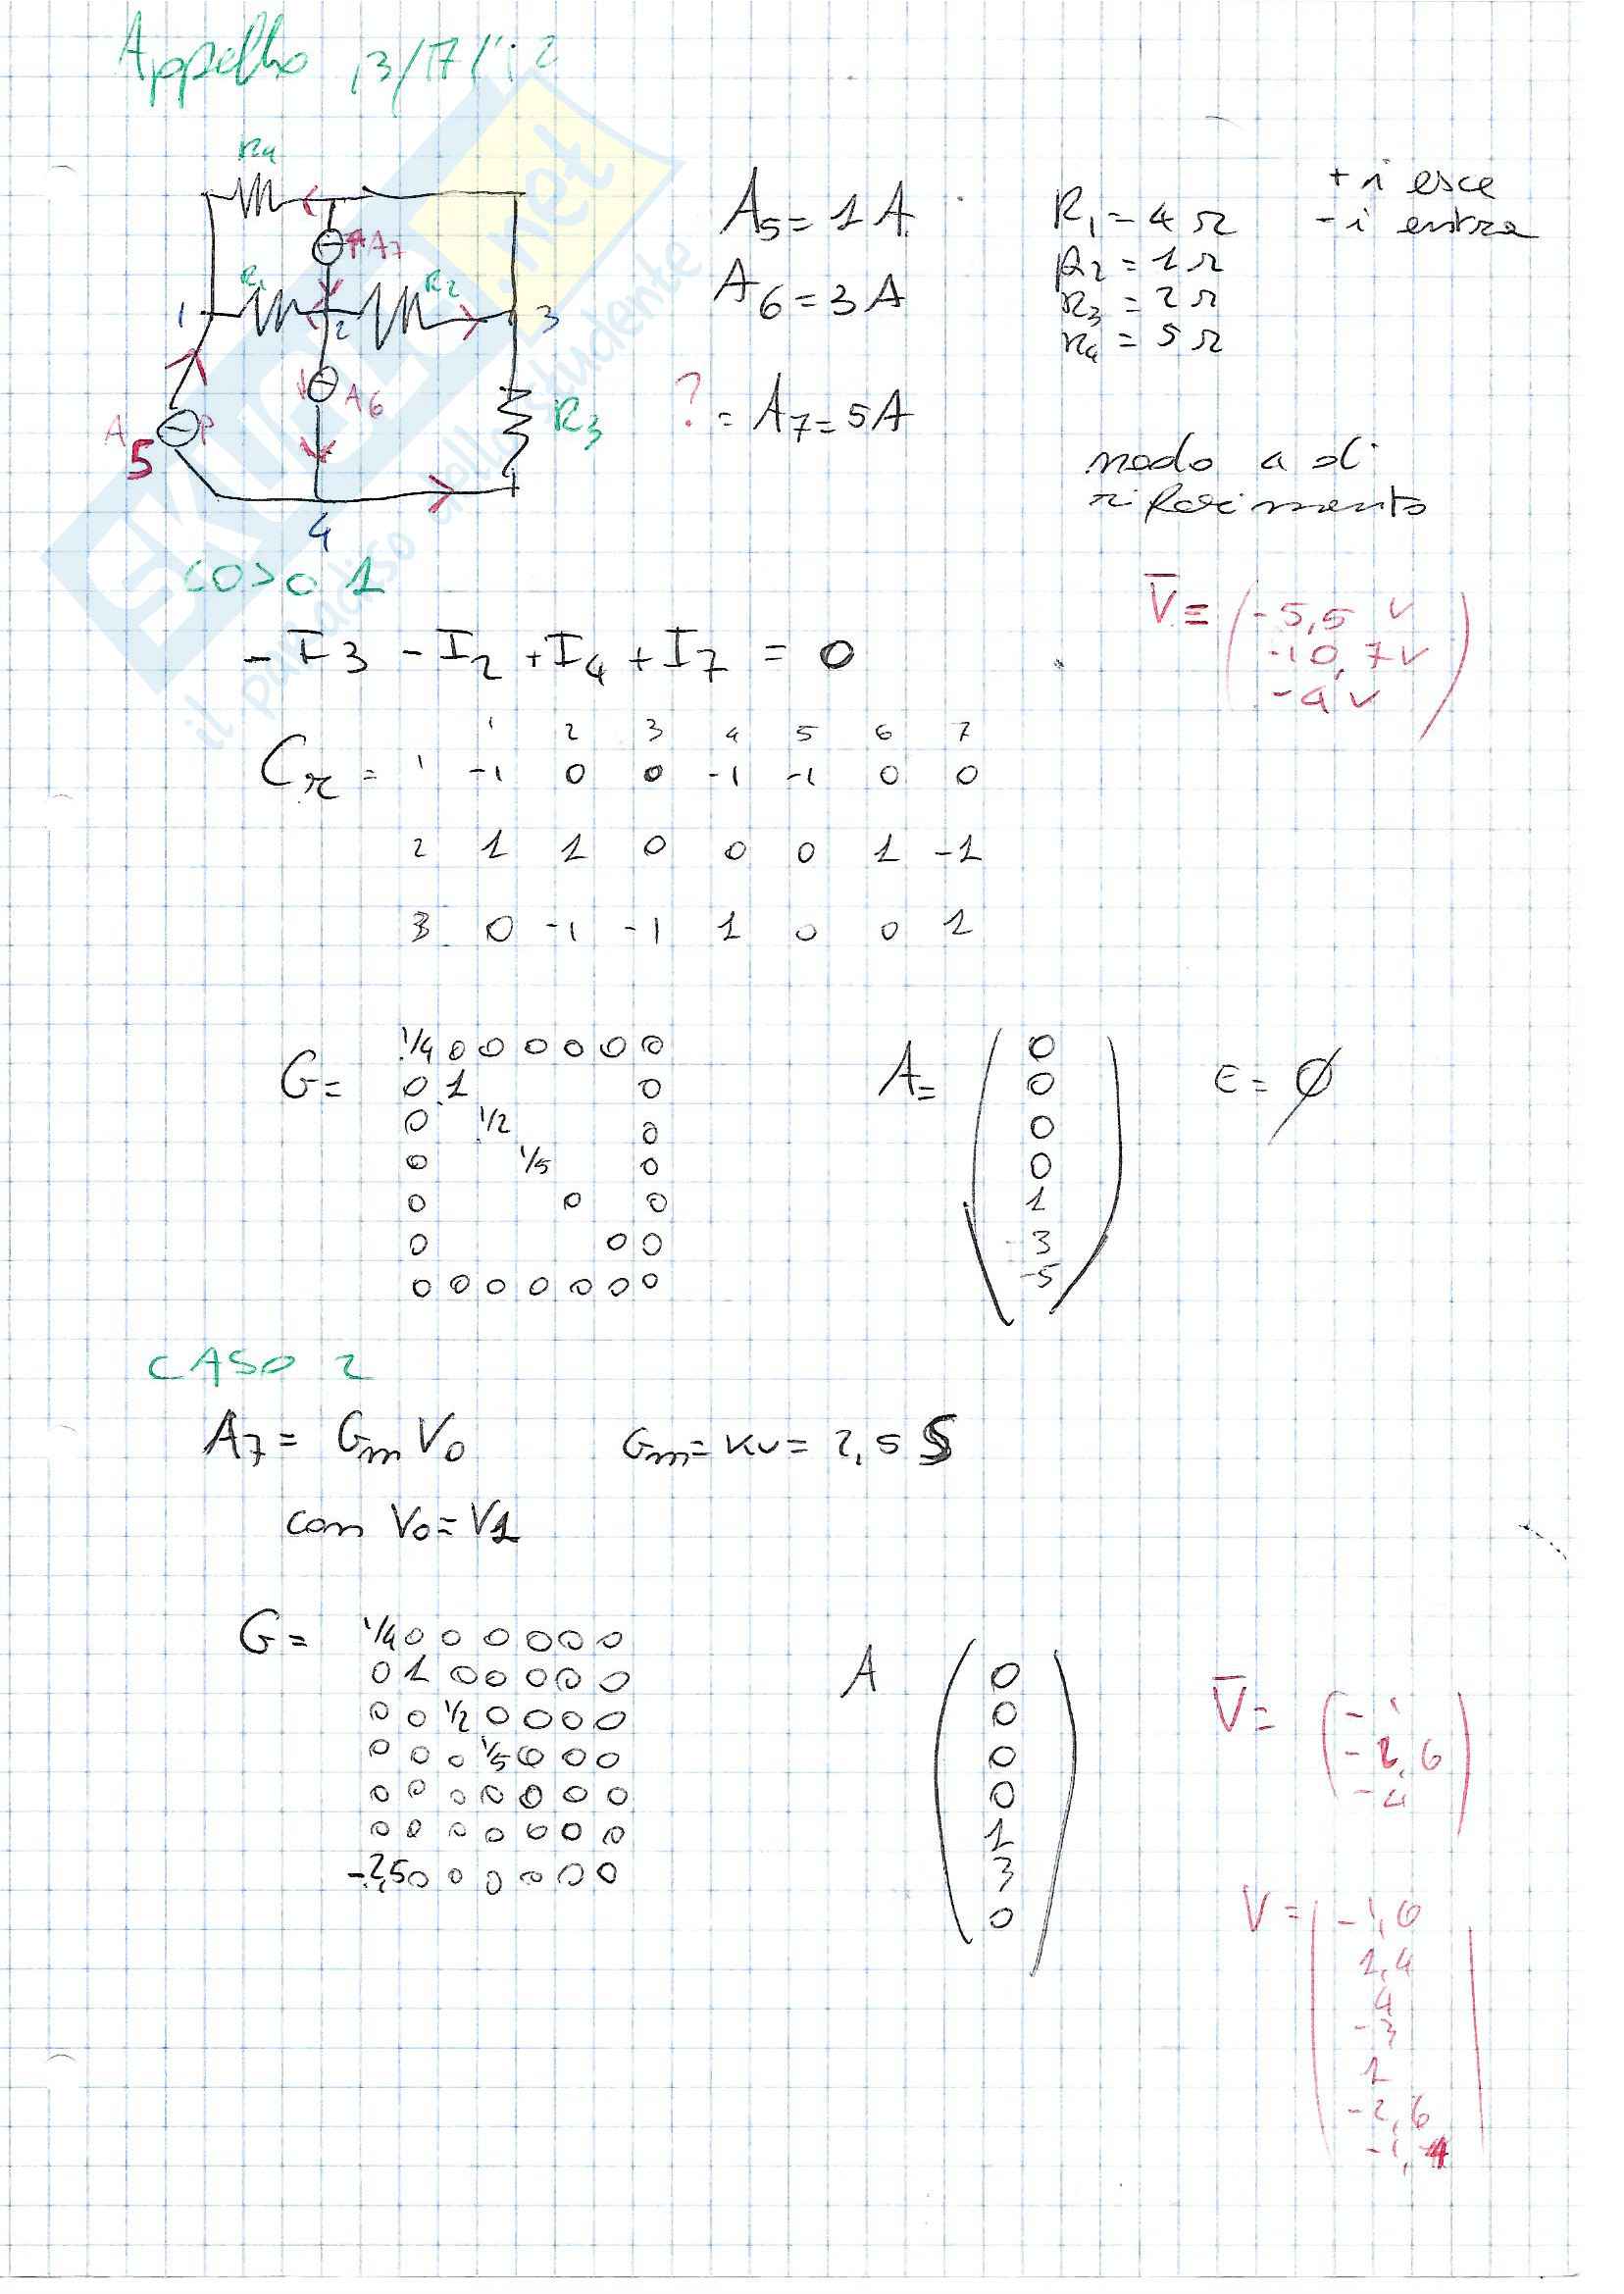 Appello 13/17/12
R4
A7
R1
R2
1
2
3
A6
A5
R3
4
A5 = 1 A
A6 = 3 A
? = A7 = 5A
R1 = 4 Ω
R2 = 1 Ω
R3 = 2 Ω
R4 = 5 Ω
+ i esce
- i entra
nodo 4 di
riferimento
caso 1
V̅ = ( -5,5 V
-10,7 V
-4 V )
- I3 - I2 + I4 + I7 = 0
1 2 3 4 5 6 7
Cr = 1 -1 0 0 -1 -1 0 0
2 1 1 0 0 0 1 -1
3 0 -1 -1 1 0 0 1
G = 1/4 0 0 0 0 0 0
0 1 0
0 1/2 0
0 1/5 0
0 0 0
0 0 0
0 0 0 0 0 0 0
A = ( 0
0
0
0
1
3
-5 )
E = ∅
CASO 2
A7 = Gm V0
Gm = Kv = 2,5 S
con V0 = V1
G = 1/4 0 0 0 0 0 0
0 1 0 0 0 0 0
0 0 1/2 0 0 0 0
0 0 0 1/5 0 0 0
0 0 0 0 0 0 0
0 0 0 0 0 0 0
-2,5 0 0 0 0 0 0
A ( 0
0
0
0
1
3
0 )
V̅ = ( -1
-2,6
-4 )
V = ( -1,6
1,4
4
-3
1
-2,6
-1,4 )
SKUOLA.net
il paradiso dello studente